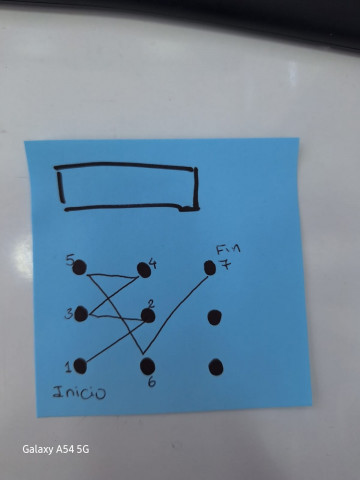 Fin
5 4 7
3 2
1
6
Inicio
Galaxy A54 5G